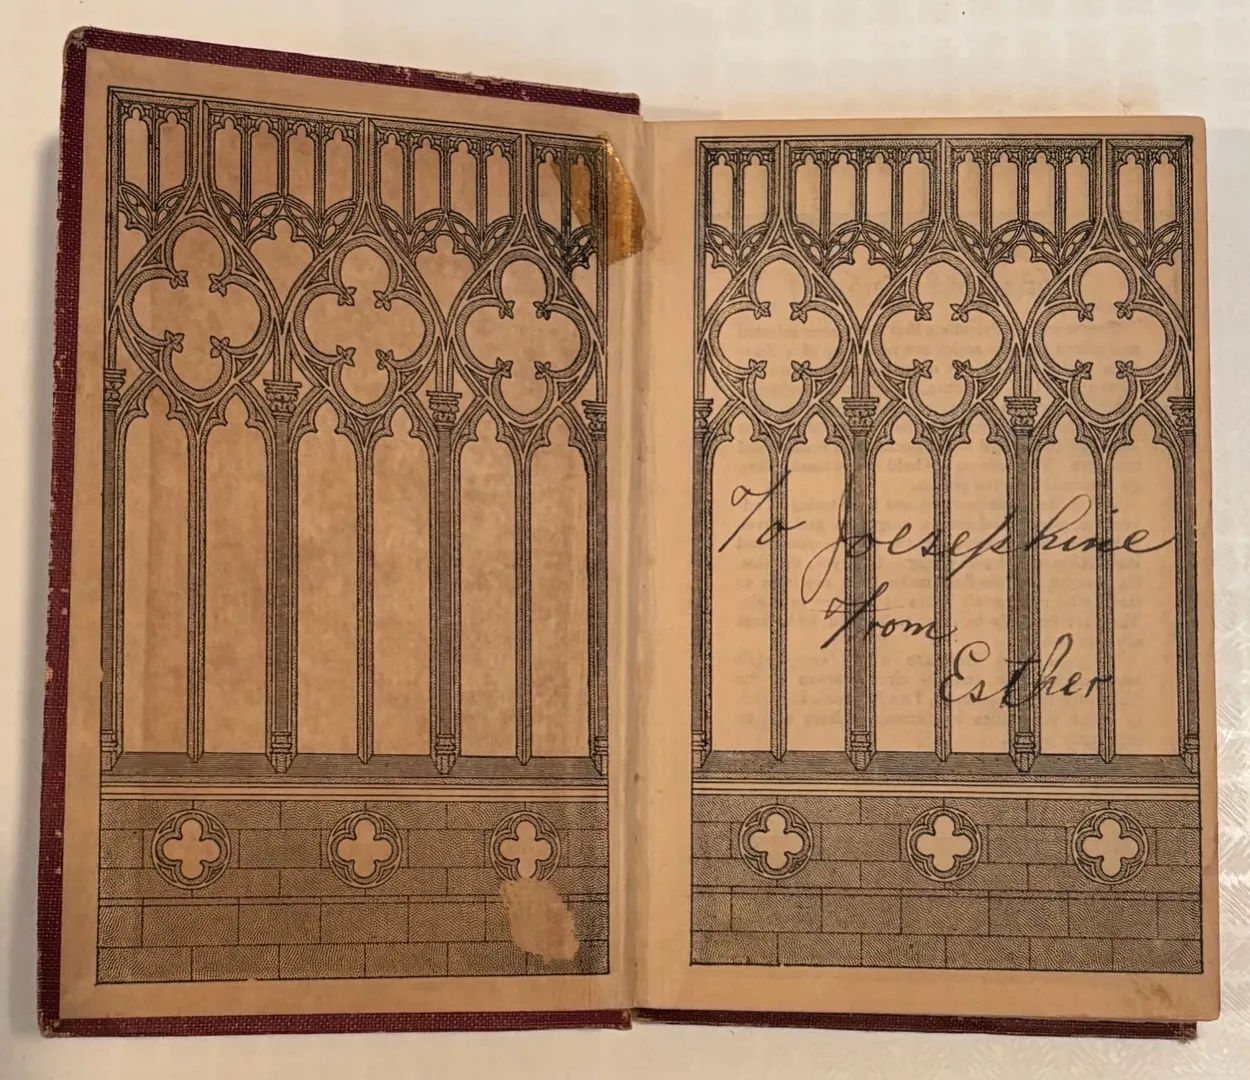 To Joesephine
From
Esther